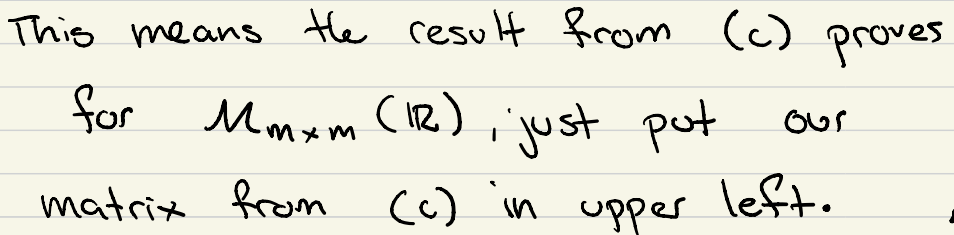 This means the result from (c) proves
for M_{m×m} (ℝ), just put our
matrix from (c) in upper left.